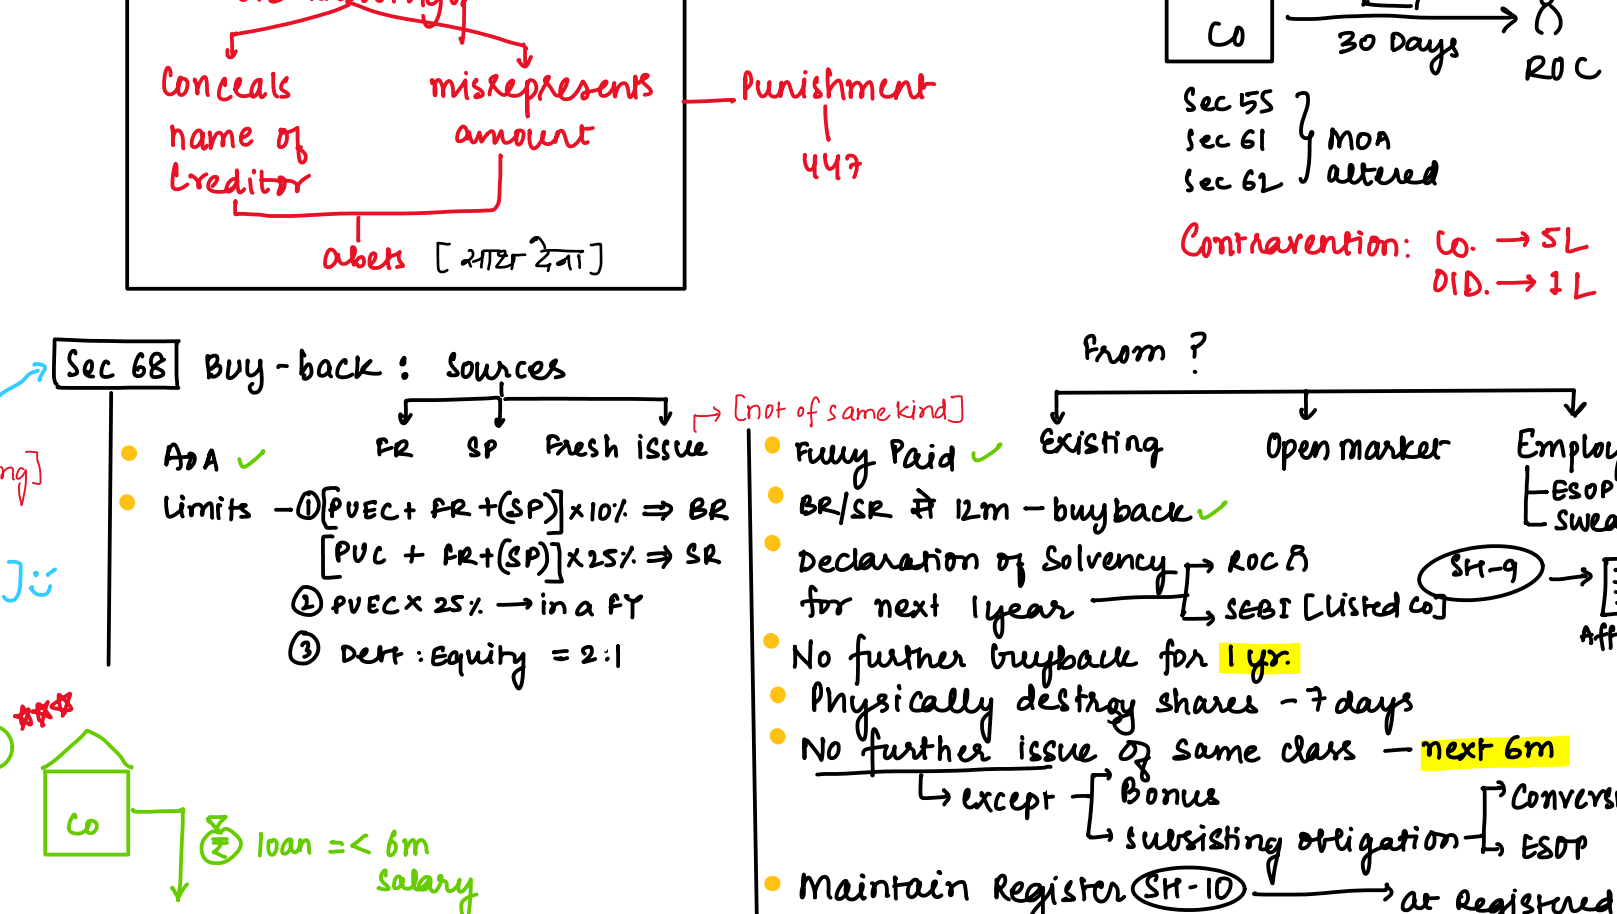 Conceals
name of
Creditor
misrepresents
amount
abets [साथ देना]
Punishment
447
Co
30 Days
ROC
Sec 55
Sec 61
Sec 62
MOA
altered
Contravention: Co. → 5L
OID. → 1L
Sec 68
Buy-back : Sources
FR SP Fresh issue
→ [not of same kind]
• AOA ✓
• Limits - ① [PUEC + FR + (SP)] × 10% ⇒ BR
[PUC + FR + (SP)] × 25% ⇒ SR
② PUEC × 25% → in a FY
③ Debt : Equity = 2:1
ng]
]
Co
₹ loan = < 6m
salary
From ?
Existing Open market Employ
ESOP
Swea
• Fully Paid ✓
• BR/SR से 12m - buyback ✓
• Declaration of Solvency
for next 1 year
→ ROC
→ SEBI [Listed Co]
SH-9 →
Aff
• No further buyback for 1 yr.
• Physically destroy shares - 7 days
• No further issue of same class - next 6m
→ except
→ Bonus
→ subsisting obligation
→ Convers
→ ESOP
• Maintain Register SH-10 → at Registered